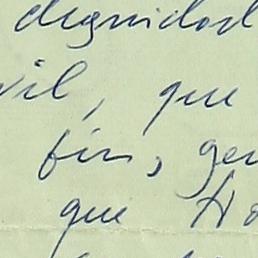 dignidad
vil, que
fin, gen
que Ho